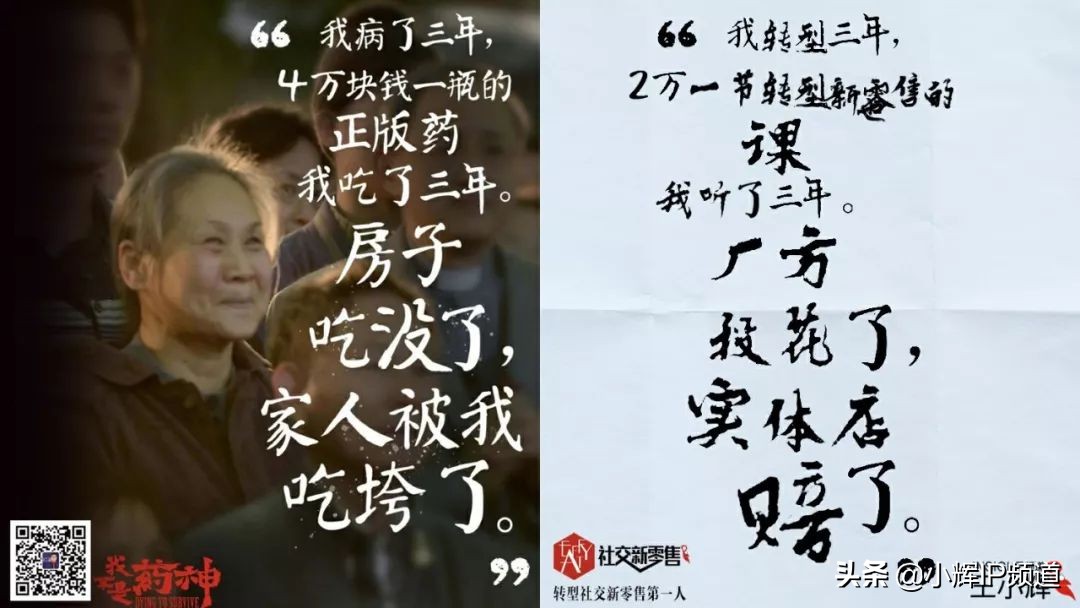 “ 我病了三年，
4万块钱一瓶的
正版药
我吃了三年。
房子
吃没了，
家人被我
吃垮了。
”
我不是药神
DYING TO SURVIVE
“ 我转型三年，
2万一节转型新零售的
课
我听了三年。
厂方
没花了，
实体店
赔了。
”
社交新零售
转型社交新零售第一人
头条 @小辉IP频道